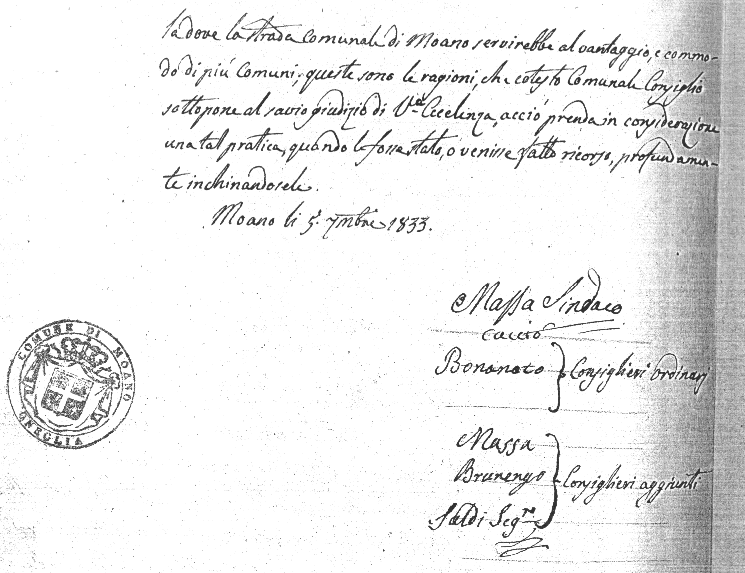 la dove la strada Comunale di Moano servirebbe al vantaggio, e commo-
do di più Comuni; queste sono le ragioni, che cotesto Comunale Consiglio
sottopone al savio giudizio di V.ra Eccelenza, acciò prenda in considerazione
una tal pratica, quando le fosse stato, o venisse fatto ricorso, profundamen-
te inchinandosele.
Moano li 5. 7mbre 1833.
Massa Sindaco
Bonanato
Consiglieri ordinarj
Massa
Brunengo
Consiglieri aggiunti
Saldi Seg.rio
COMUNE DI MOANO
ONEGLIA